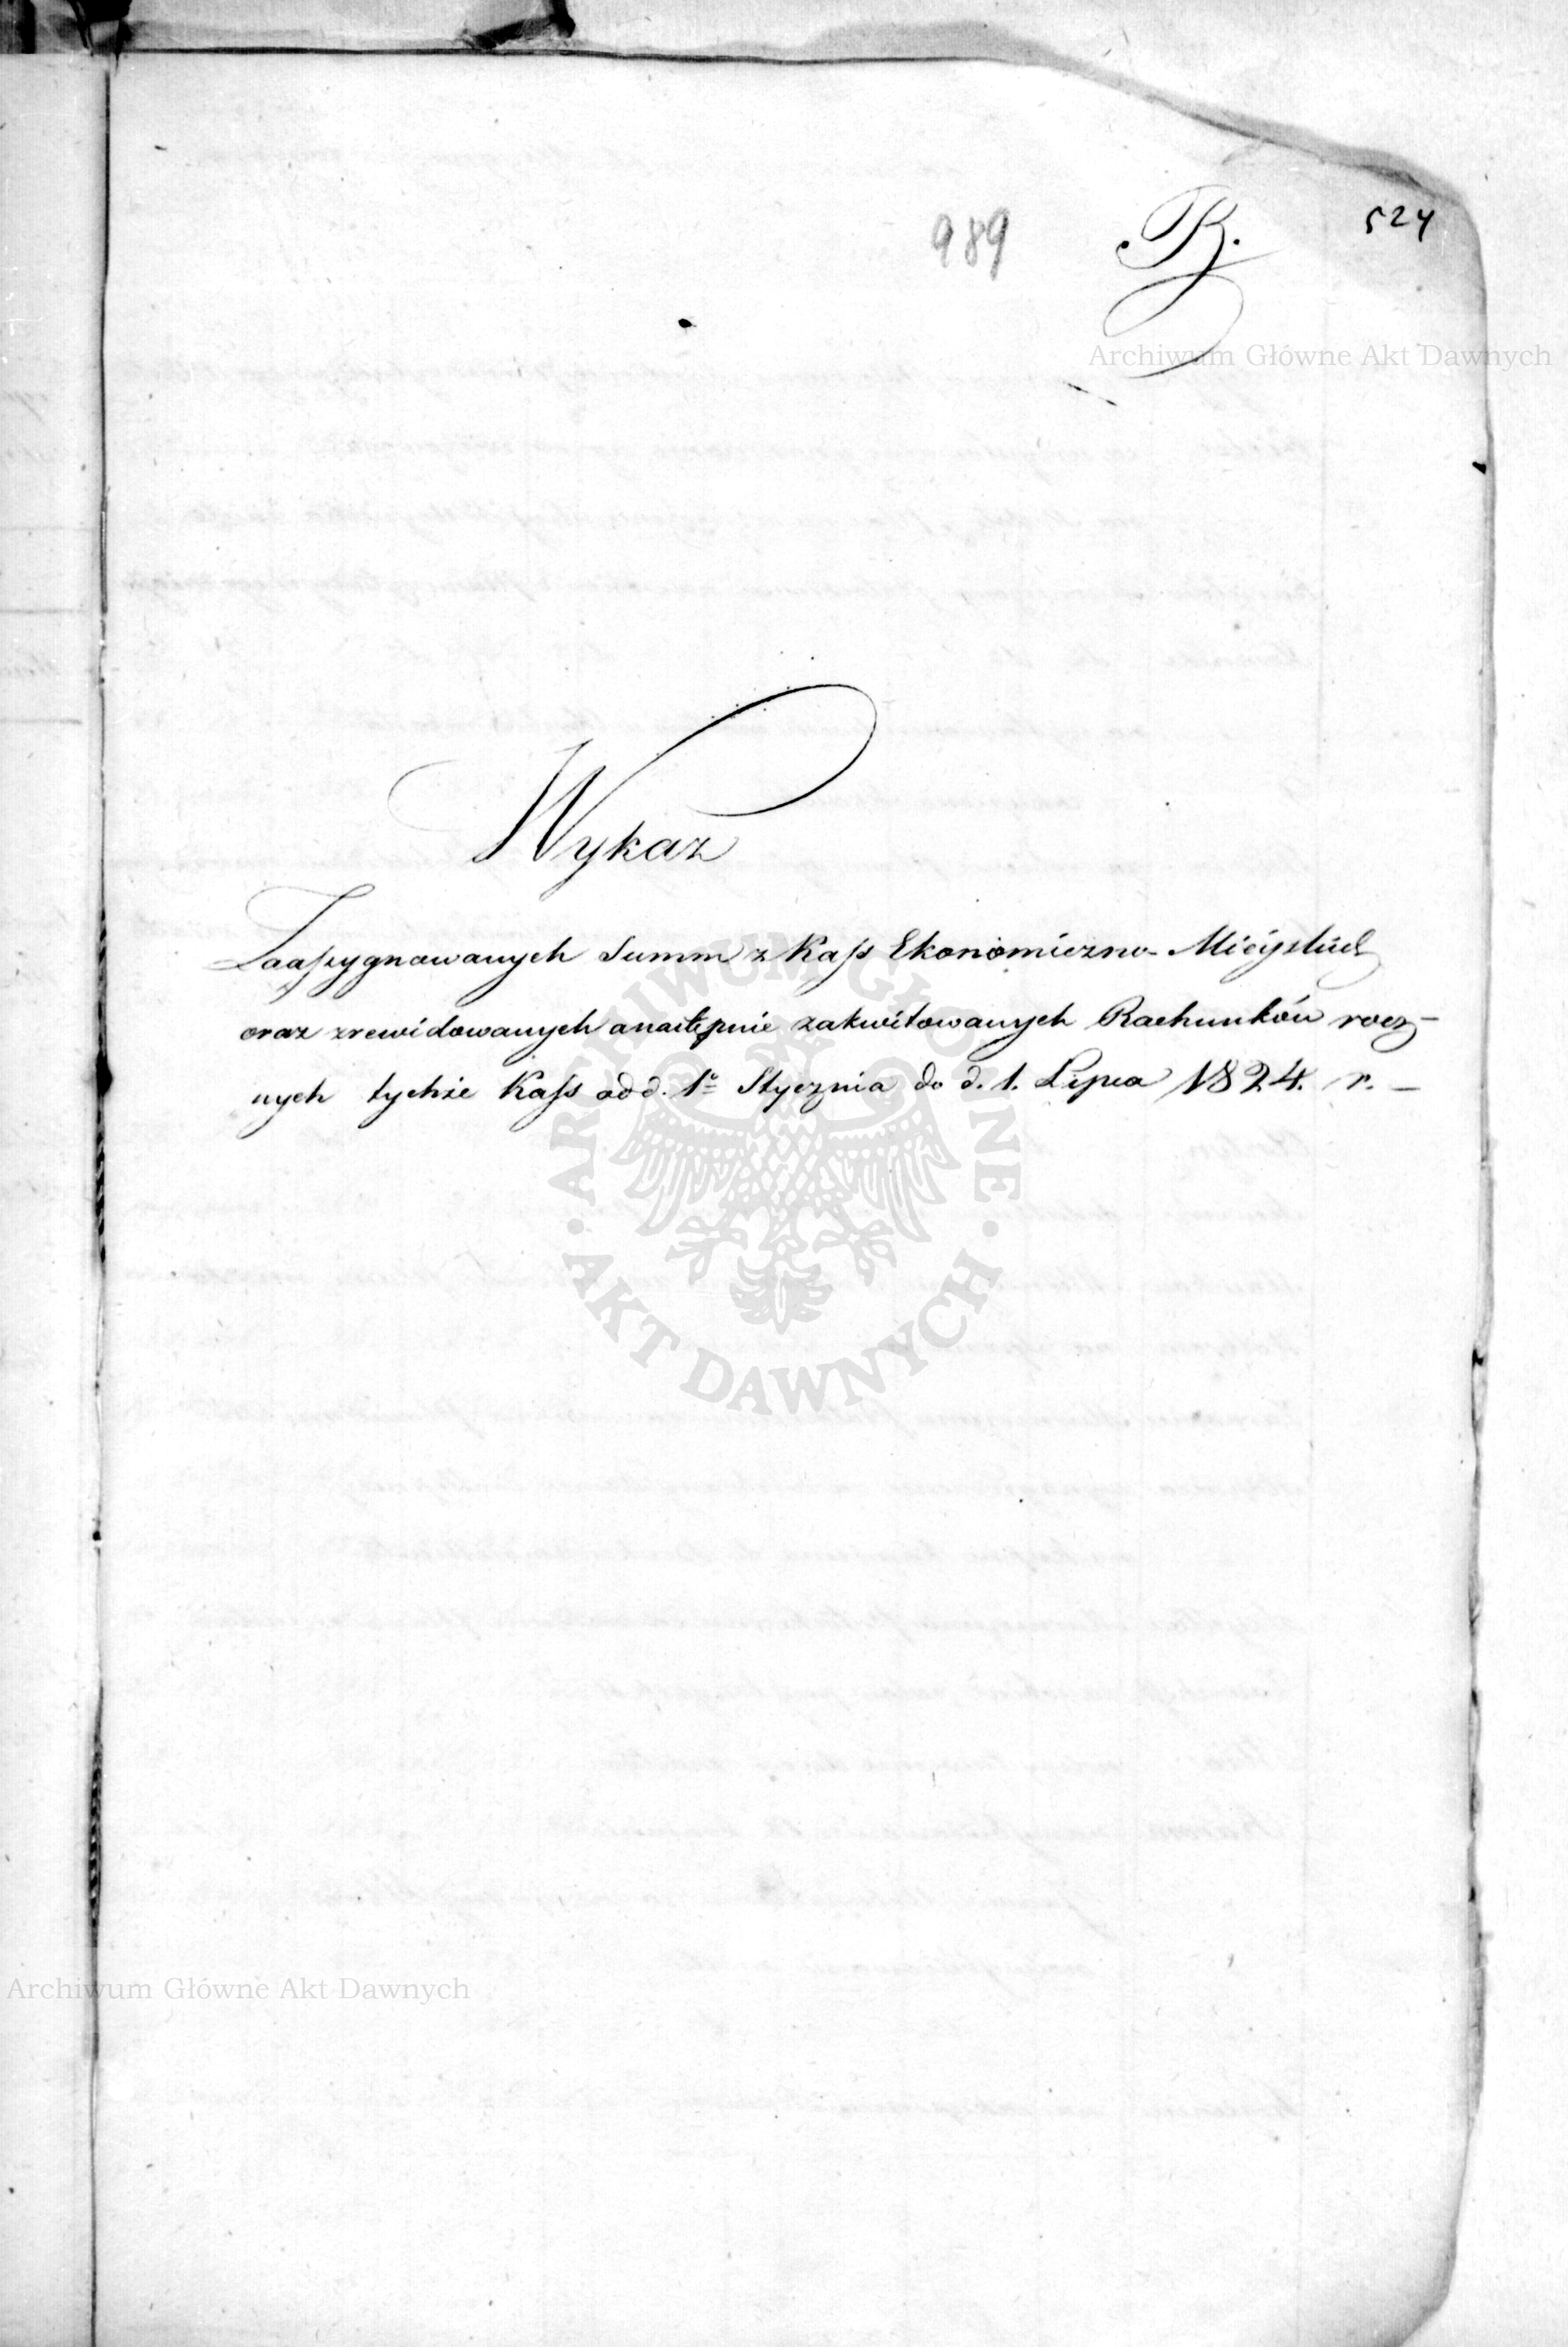 989 B. 524
Archiwum Główne Akt Dawnych
Wykaz
Zaassygnowanych Summ z Kass Ekonomiczno-Mieyskich
oraz zrewidowanych a nastepnie zakwitowanych Rachunków rocz-
nych tychże Kass od d. 1º Stycznia do d. 1. Lipca 1824. r. –
ARCHIWUM GŁÓWNE
· AKT DAWNYCH ·
Archiwum Główne Akt Dawnych